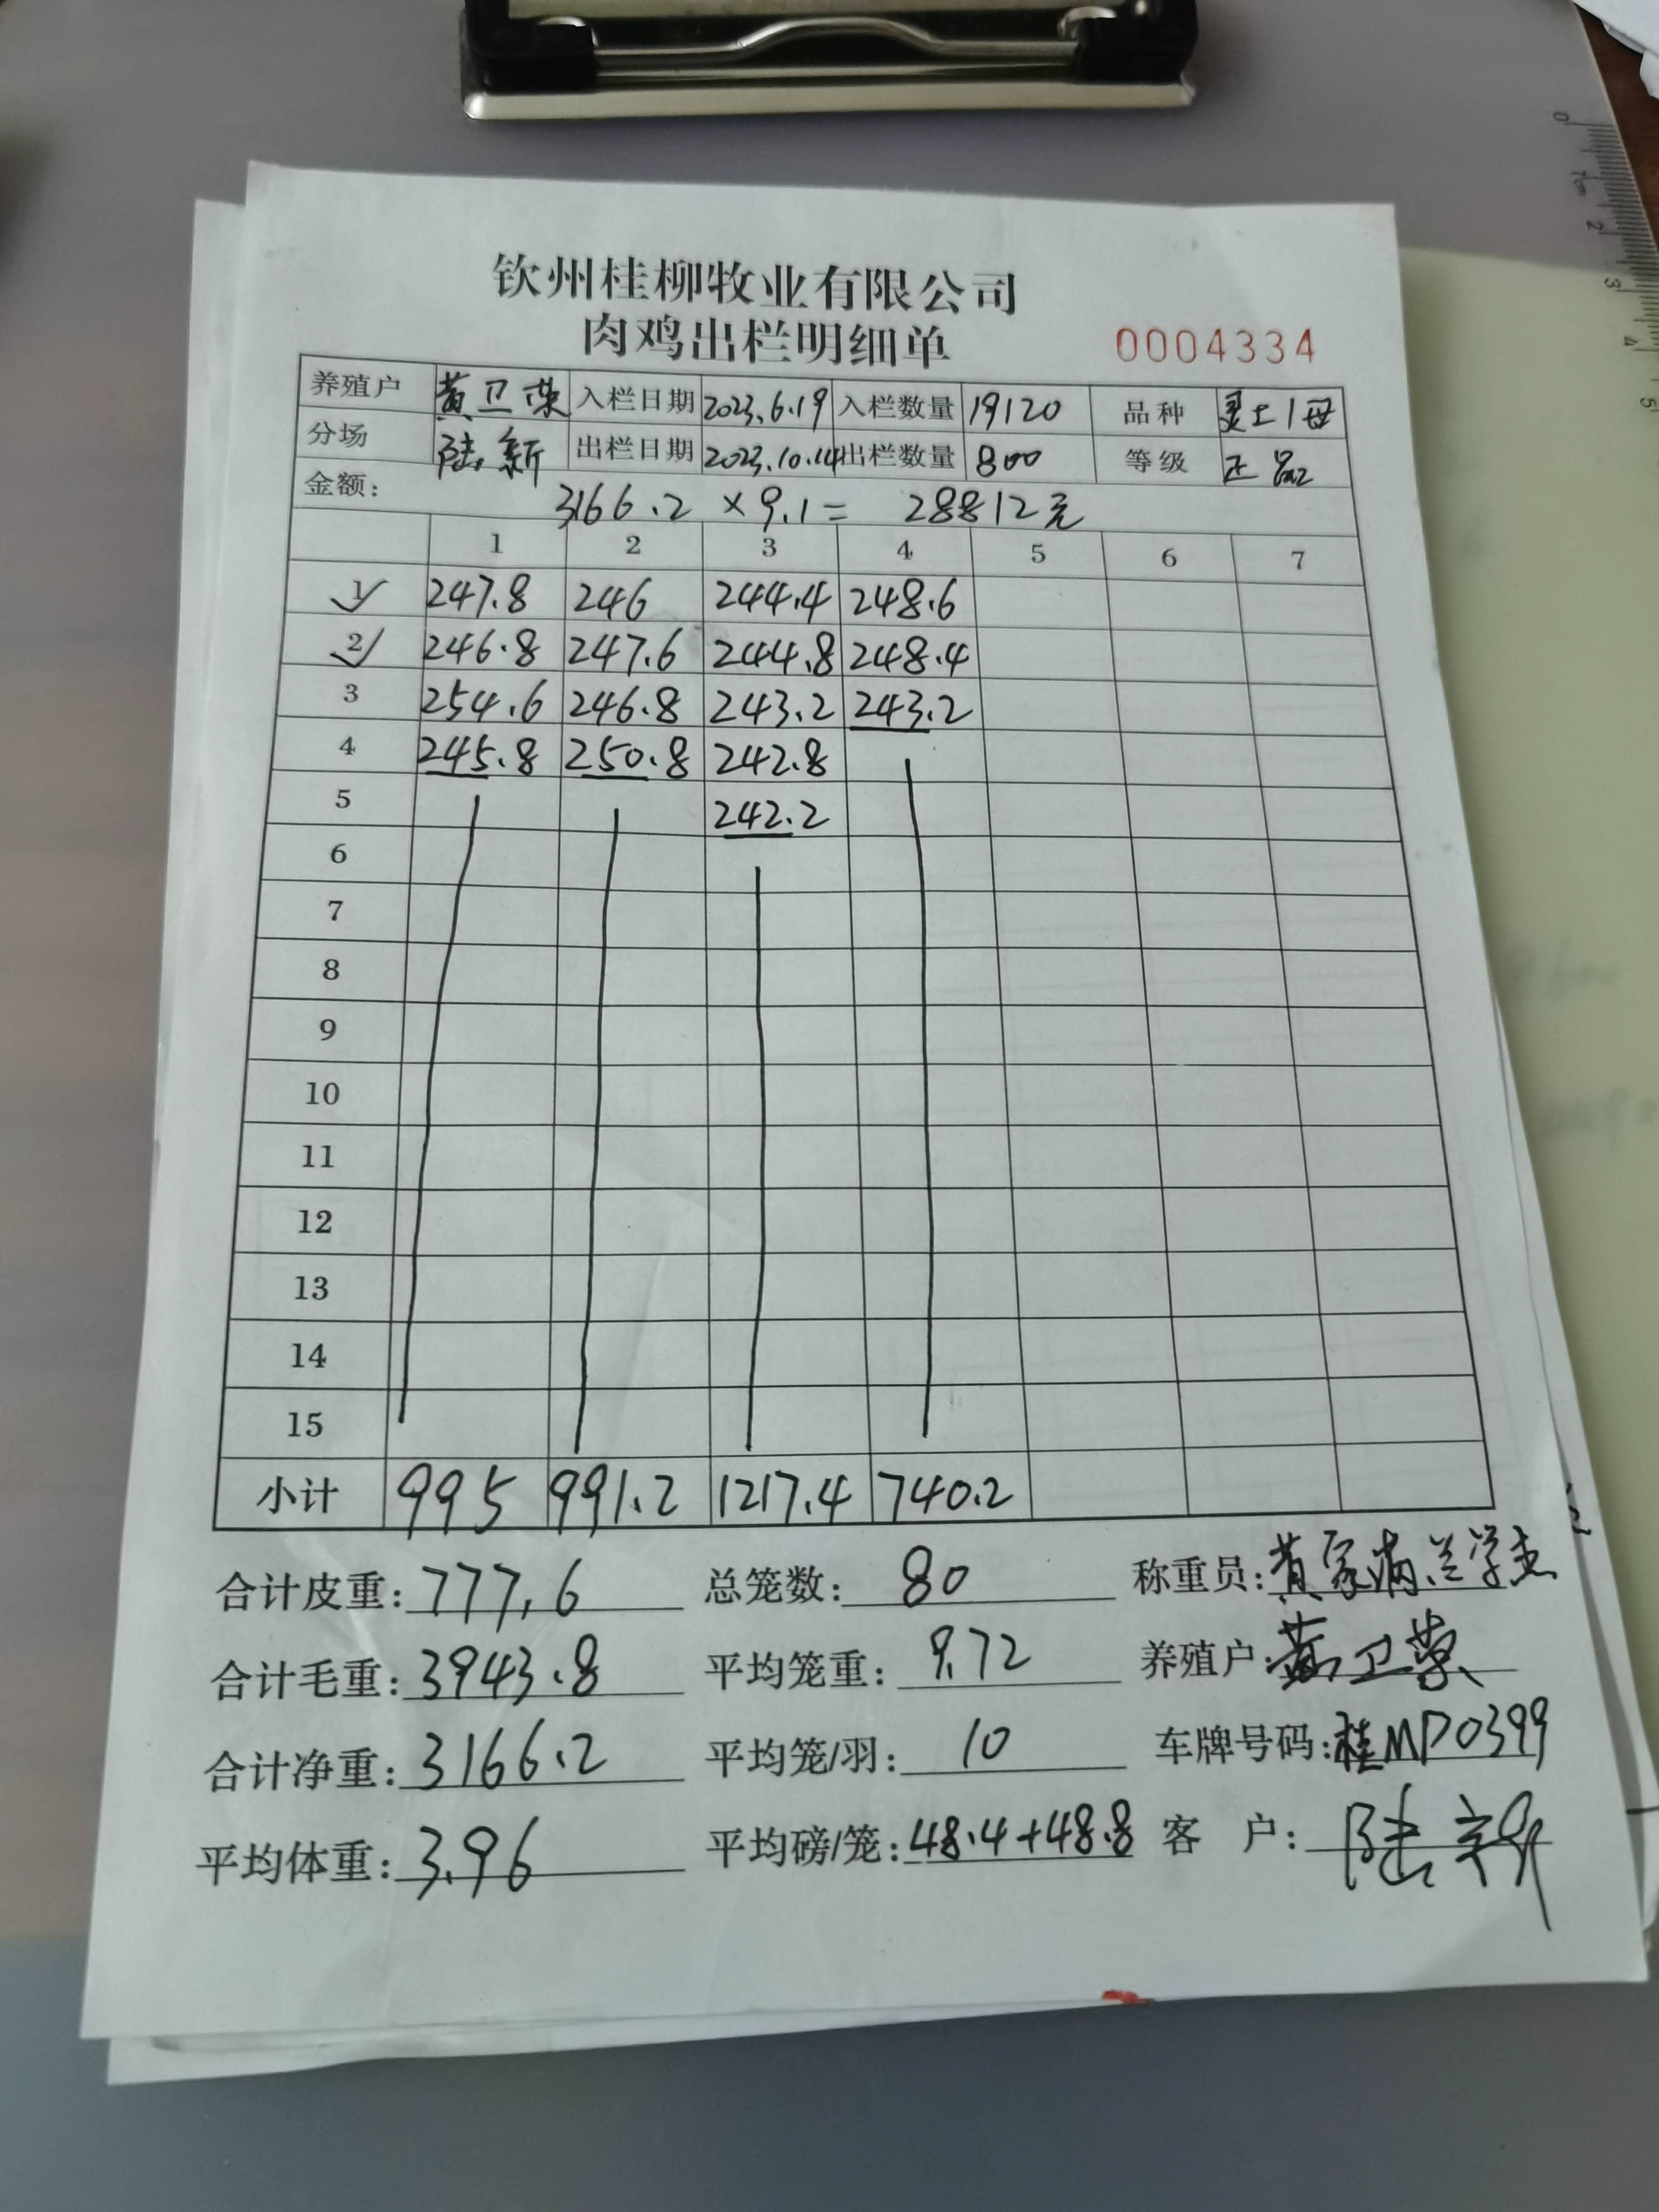 钦州桂柳牧业有限公司
肉鸡出栏明细单 0004334
养殖户 黄卫荣 入栏日期 2023.6.19 入栏数量 19120 品种 灵土1母
分场 陆新 出栏日期 2023.10.14 出栏数量 800 等级 正品
金额: 3166.2 ×9.1= 28812元
1 2 3 4 5 6 7
1 247.8 246 244.4 248.6
2 246.8 247.6 244.8 248.4
3 254.6 246.8 243.2 243.2
4 245.8 250.8 242.8
5 242.2
6
7
8
9
10
11
12
13
14
15
小计 995 991.2 1217.4 740.2
合计皮重: 777.6 总笼数: 80 称重员: 黄家满 兰学杰
合计毛重: 3943.8 平均笼重: 9.72 养殖户: 黄卫荣
合计净重: 3166.2 平均笼/羽: 10 车牌号码: 桂MD0399
平均体重: 3.96 平均磅/笼: 48.4+48.8 客 户: 陆新
0
1cm
2
3
4
5